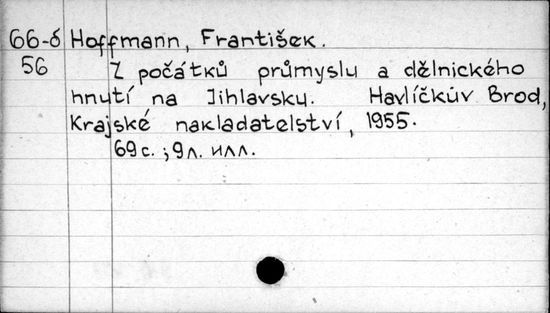 66-б Hoffmann, František.
56 Z počátků průmyslu a dělnického
hnutí na Jihlavsku. Havlíčkův Brod,
Krajské nakladatelství, 1955.
69 с. ; 9 л. илл.